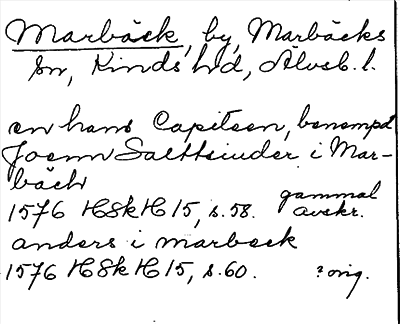 Marbäck, by, Marbäcks
sn, Kinds hd, Älvsb. l.
en hans Capiteen, benempd
Joenn Salttsiuder i Mar-
bäck
1576 HSkH 15, s. 58. gammal avskr.
anders i marbeck
1576 HSkH 15, s. 60. ? orig.